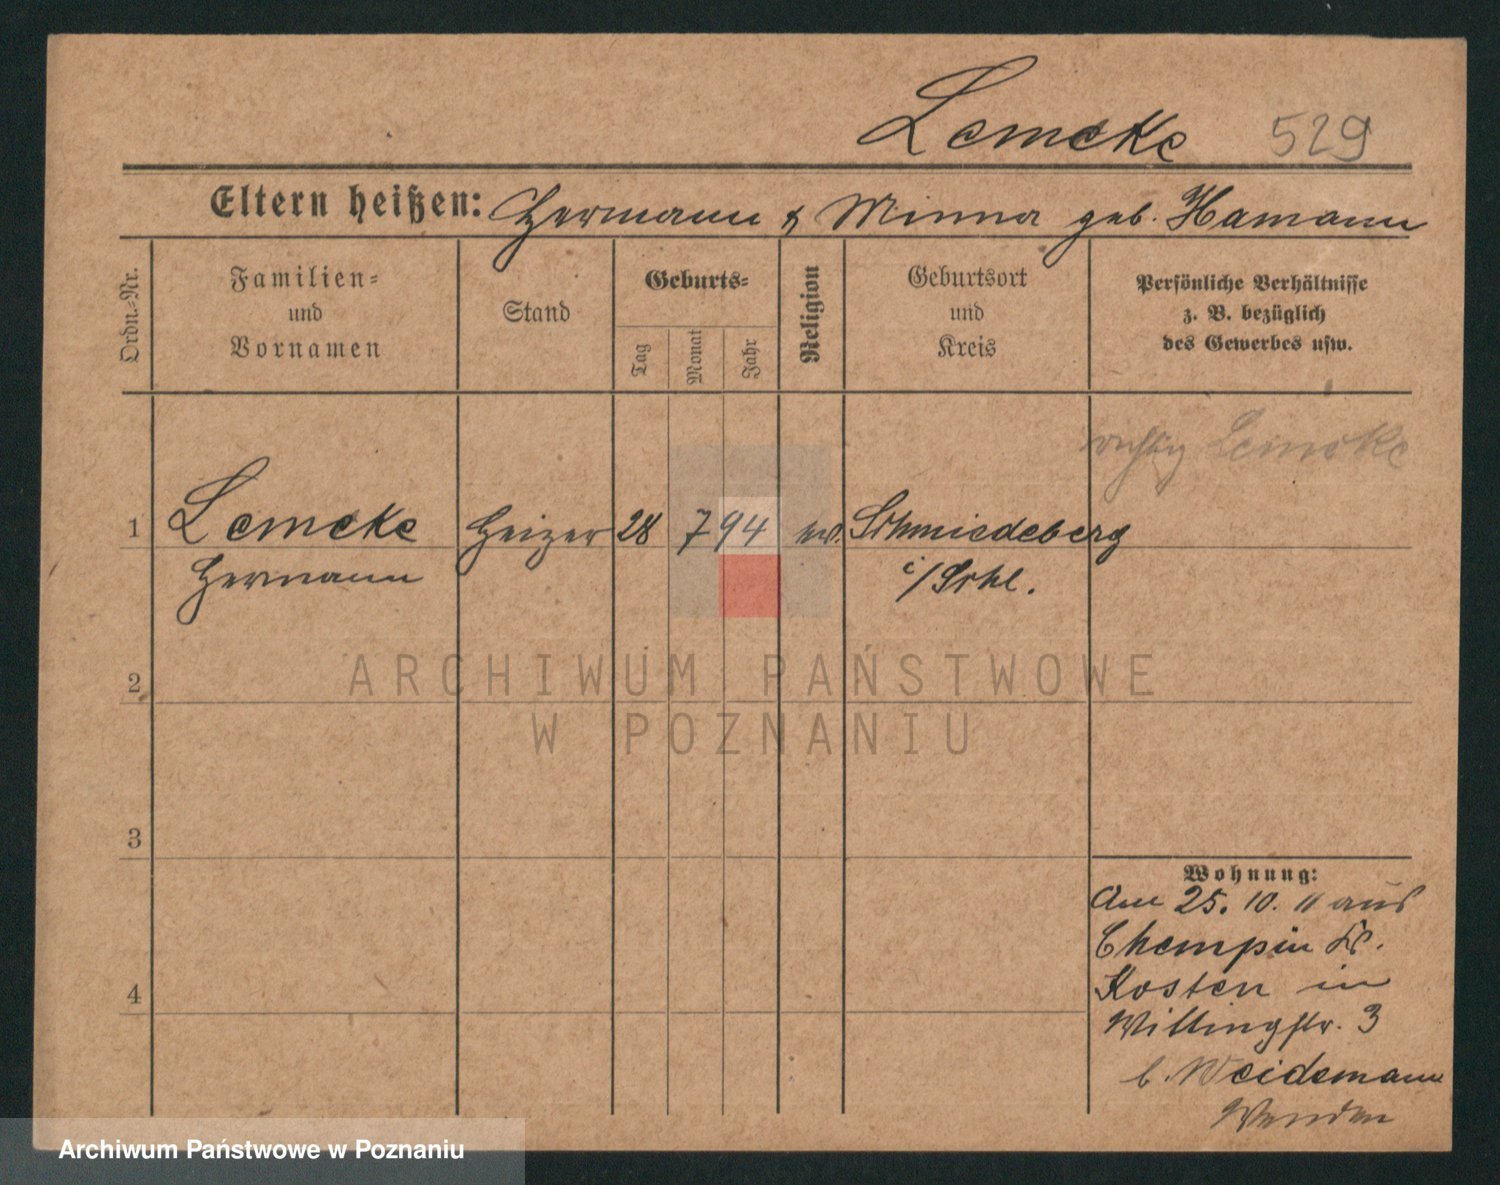 Lemcke 529
Eltern heißen: Hermann & Minna geb. Hamann
Ordn.-Nr.
Familien-
und
Vornamen
Stand
Geburts-
Tag
Monat
Jahr
Religion
Geburtsort
und
Kreis
Persönliche Verhältnisse
z. B. bezüglich
des Gewerbes usw.
richtig Lemcke
1 Lemcke Heizer 28 7 94 ev. Schmiedeberg
Hermann i/Schl.
2
3
4
Wohnung:
Am 25. 10. 11 aus
Chempin Kr.
Kosten in
Willingstr. 3
b. Weidemann
ARCHIWUM PAŃSTWOWE
W POZNANIU
Archiwum Państwowe w Poznaniu